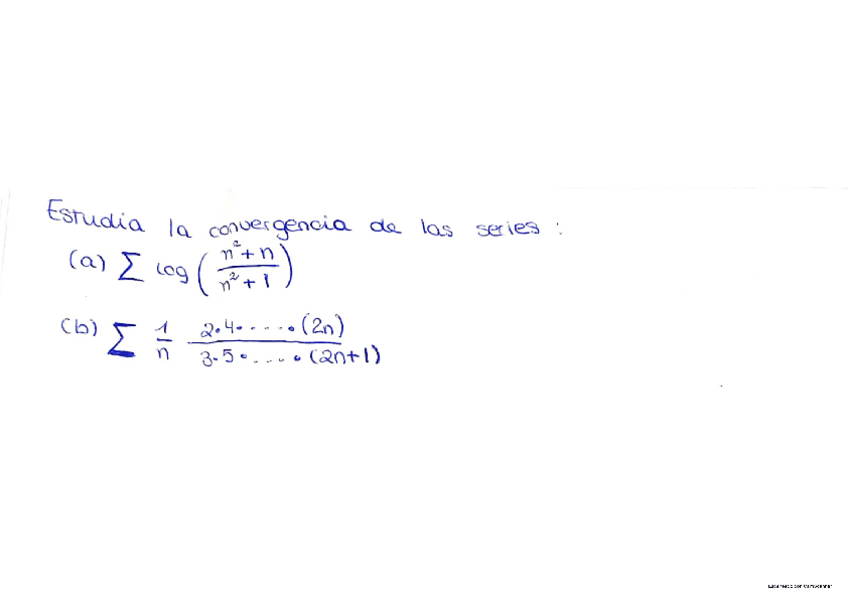 Estudia la convergencia de las series :
(a) ∑ log ( (n²+n)/(n²+1) )
(b) ∑ 1/n (2·4·....·(2n))/(3·5·....·(2n+1))